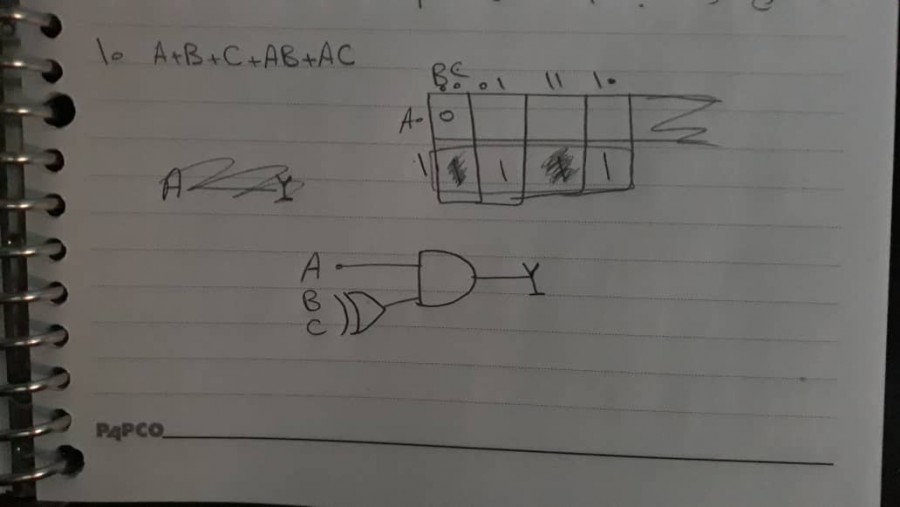 10 A+B+C+AB+AC
BC
00 01 11 10
A0 0
1 1 1
A Y
A Y
B
C
PAPCO